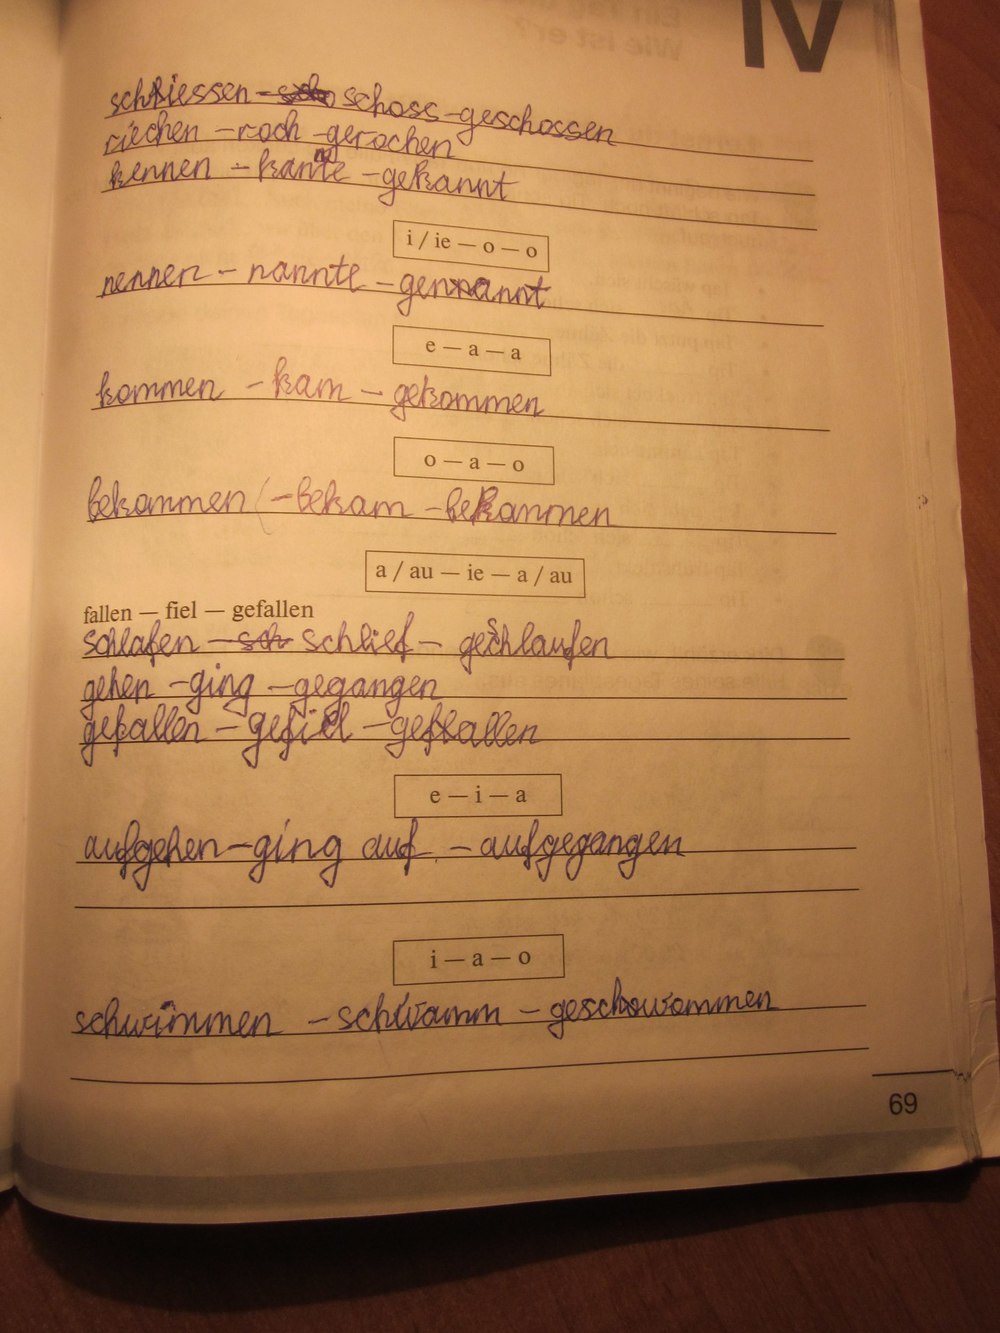 IV
schiessen - schoss - geschossen
riechen - roch - gerochen
kennen - kannte - gekannt
i / ie — o — o
nennen - nannte - genannt
e — a — a
kommen - kam - gekommen
o — a — o
bekommen - bekam - bekommen
a / au — ie — a / au
fallen — fiel — gefallen
schlafen - schlief - geschlaufen
gehen - ging - gegangen
gefallen - gefiel - gefallen
e — i — a
aufgehen - ging auf - aufgegangen
i — a — o
schwimmen - schwamm - geschwommen
69